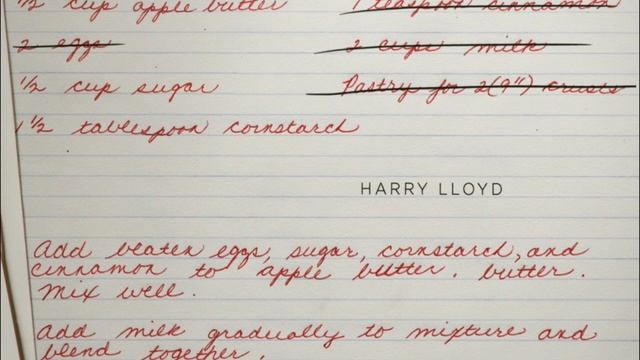 1/2 cup apple butter
1 teaspoon cinnamon
2 eggs
2 cups milk
1/2 cup sugar
Pastry for 2(9") crusts
1 1/2 tablespoon cornstarch
HARRY LLOYD
Add beaten eggs, sugar, cornstarch, and
cinnamon to apple butter. butter.
Mix well.
Add milk gradually to mixture and
blend together.